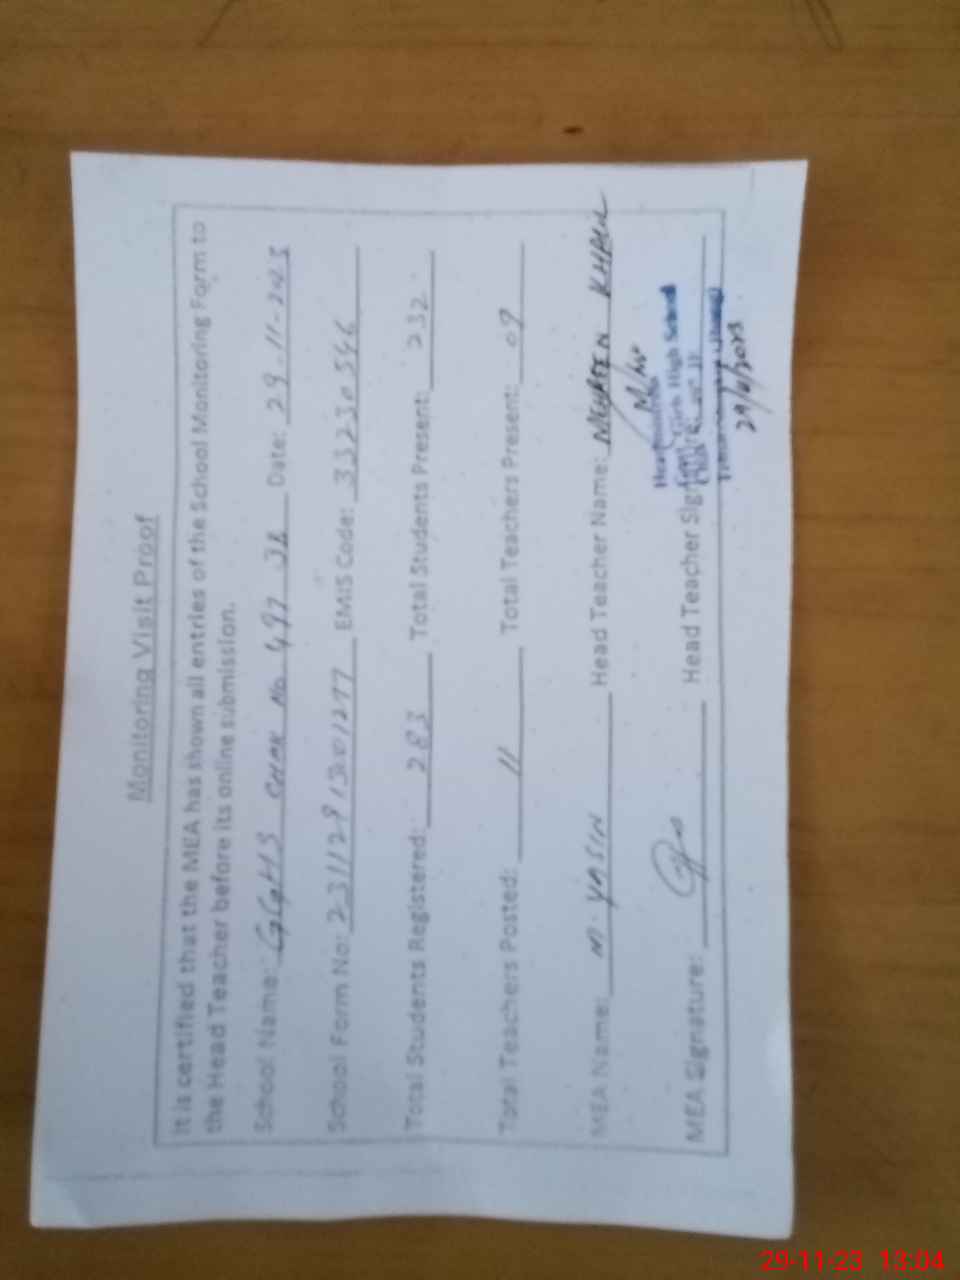 Monitoring Visit Proof
It is certified that the MEA has shown all entries of the School Monitoring Form to
the Head Teacher before its online submission.
School Name: GGHS CHAK No 497 JB Date: 29-11-2023
School Form No: EMIS Code: 33230546
Total Students Registered: 283 Total Students Present: 232
Total Teachers Posted: 11 Total Teachers Present: 09
MEA Name: M. YASIN Head Teacher Name: KHALIL
MEA Signature: Head Teacher Signature:
Girls High School
29/11/2023
29-11-23 13:04